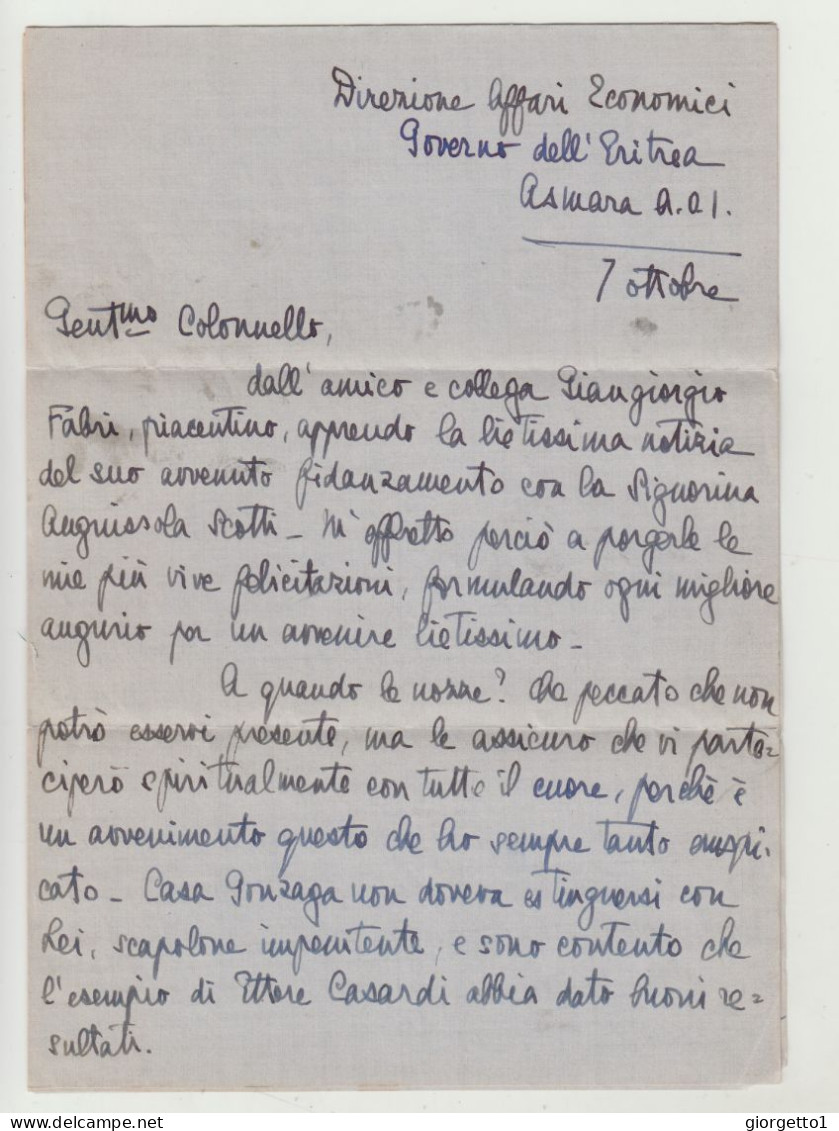 Direzione Affari Economici
Governo dell'Eritrea
Asmara A.O.I.
7 ottobre
Gent.mo Colonnello,
dall'amico e collega Giangiorgio
Fabri, piacentino, apprendo la lietissima notizia
del suo avvenuto fidanzamento con la Signorina
Anguissola Scotti - M'affretto perciò a porgerle le
mie più vive felicitazioni, formulando ogni migliore
augurio per un avvenire lietissimo -
A quando le nozze? Che peccato che non
potrò esservi presente, ma le assicuro che vi parte=
ciperò spiritualmente con tutto il cuore, perchè è
un avvenimento questo che ho sempre tanto auspi-
cato - Casa Gonzaga non doveva estinguersi con
Lei, scapolone impenitente, e sono contento che
l'esempio di Ettore Casardi abbia dato buoni re=
sultati.
delcampe.net
giorgetto1